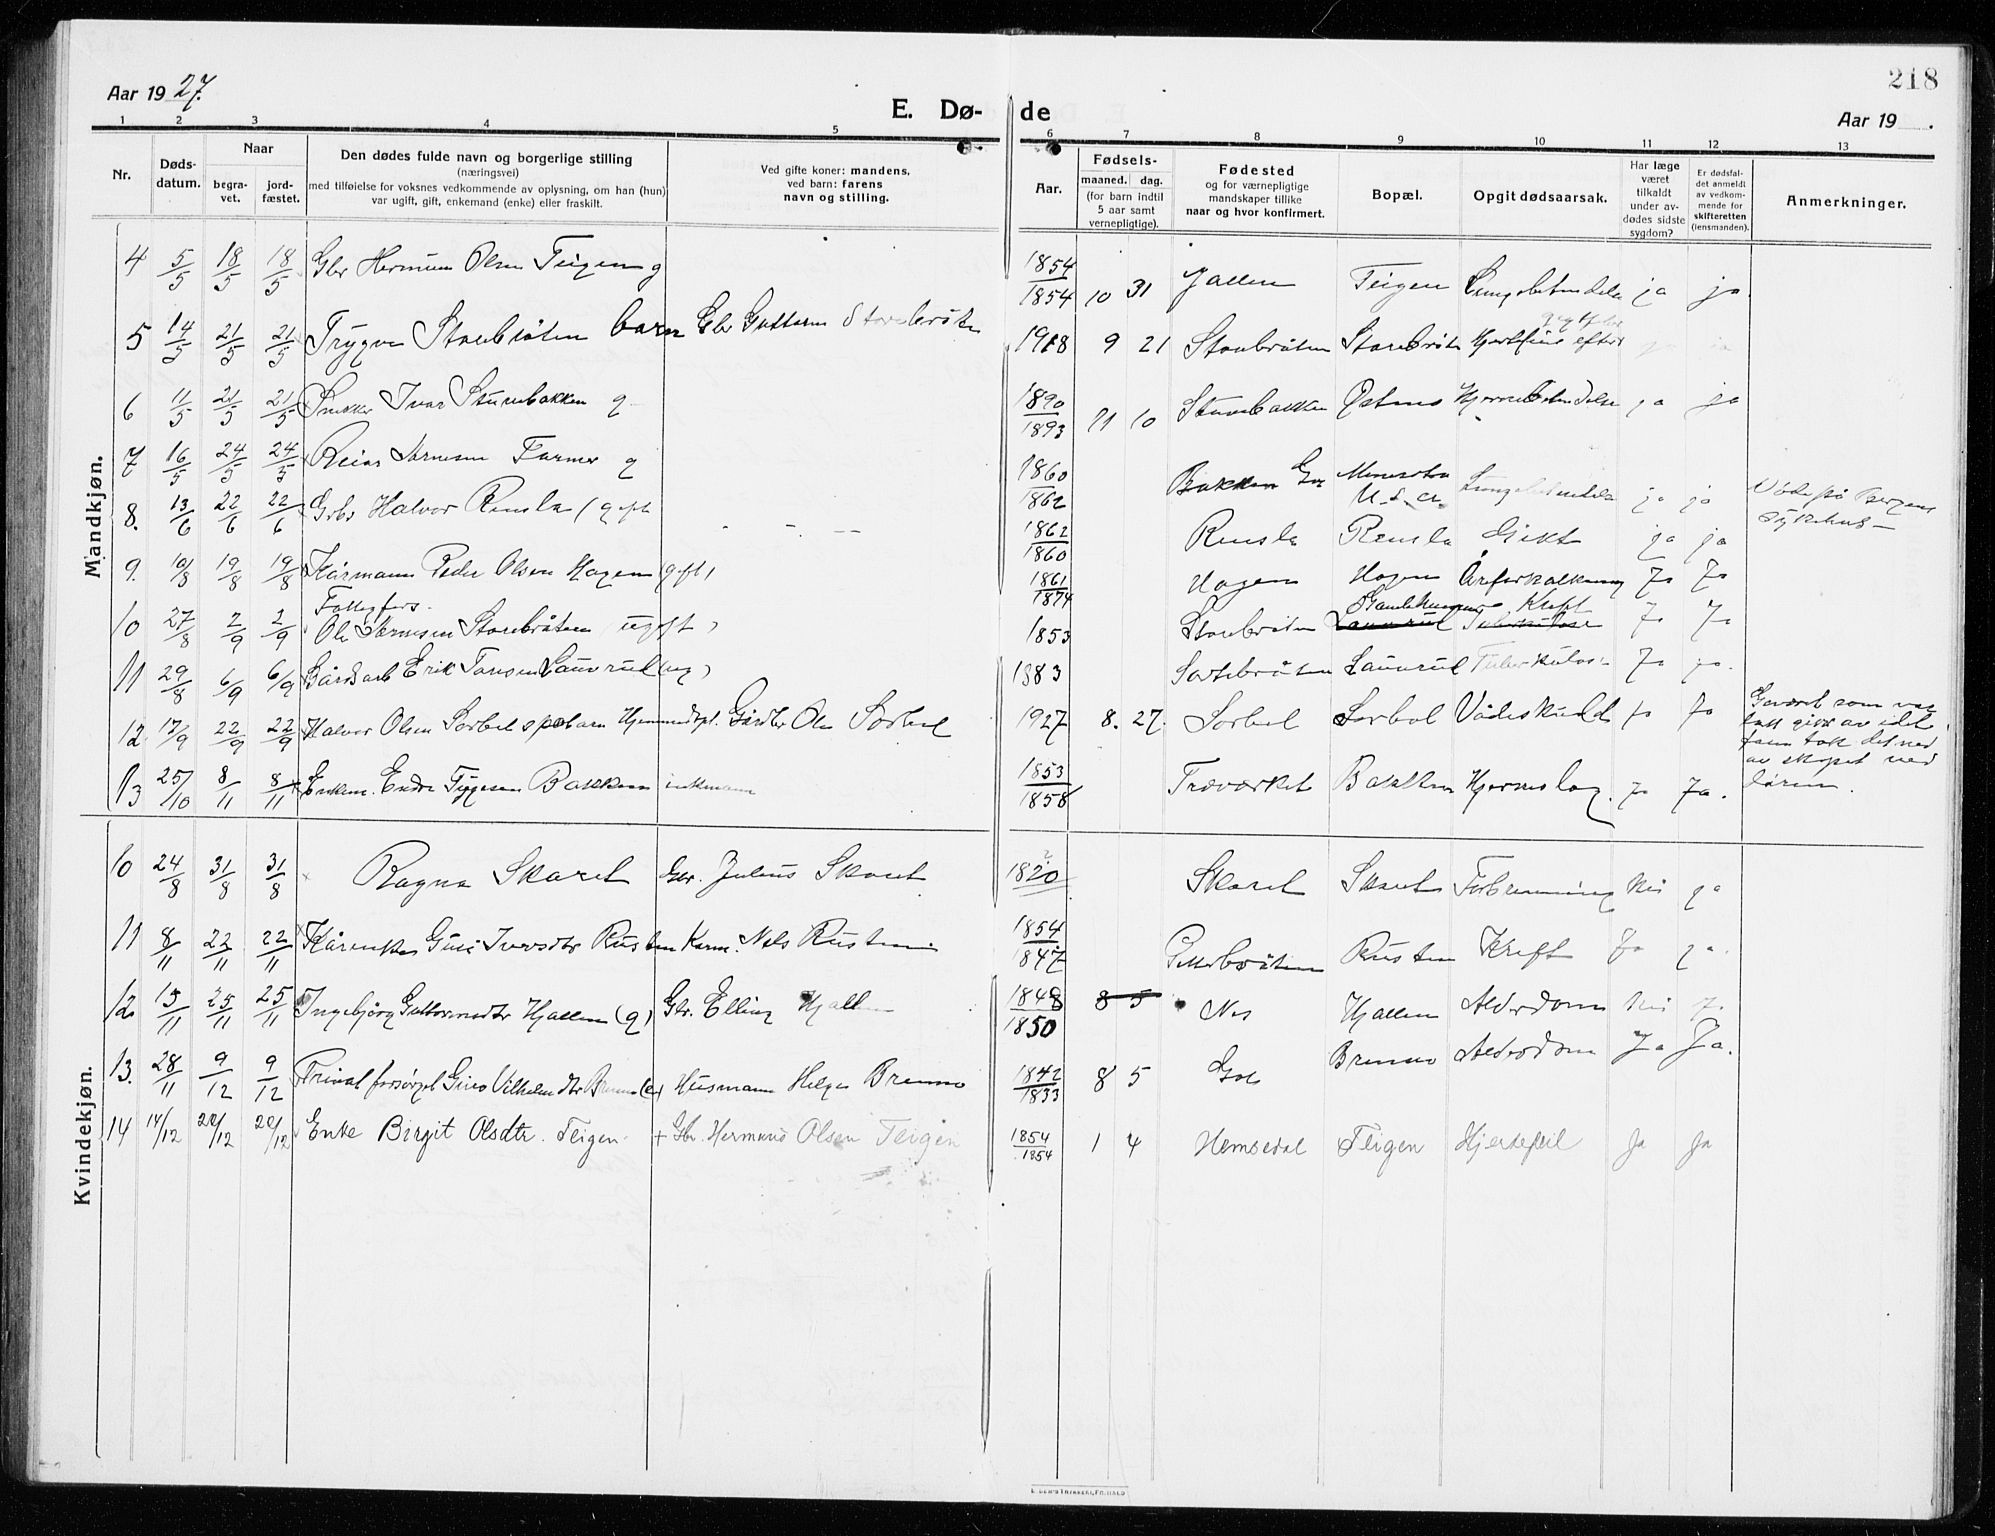 218
Aar 19 27.
E. Dø- de
Aar 19 .
1 2 3 4 5 6 7 8 9 10 11 12 13
Nr.
Døds-
datum.
Naar
begra-
vet.
jord-
fæstet.
Den dødes fulde navn og borgerlige stilling
(næringsvei)
med tilføielse for voksnes vedkommende av oplysning, om han (hun)
var ugift, gift, enkemand (enke) eller fraskilt.
Ved gifte koner: mandens,
ved barn: farens
navn og stilling.
Aar.
Fødsels-
maaned. dag.
(for barn indtil
5 aar samt
vernepligtige).
Fødested
og for værnepligtige
mandskaper tillike
naar og hvor konfirmert.
Bopæl.
Opgit dødsaarsak.
Har læge
været
tilkaldt
under av-
dødes sidste
sygdom?
Er dødsfal-
det anmeldt
av vedkom-
mende for
skifteretten
(lensmanden).
Anmerkninger.
Mandkjøn.
4 5/5 18/5 18/5 Gbr Herman Olsen Teigen g 1854/1854 10 31 Teigen ja ja
5 14/5 21/5 21/5 Trygve Storebråten barn Gbr Guttorm Storebråten 1918 9 21 Storebråten Storebråten
6 11/5 21/5 21/5 Snekker Ivar Sturebakken g 1890/1893 11 10 Sturebakken ja ja
7 16/5 24/5 24/5 Reiar Farmer g 1860/1862 Bakken Minesota U.S.A. ja ja Døde på Bergens sykehus
8. 13/6 22/6 22/6 Halvor Rensla (gift 1862/1860 Rensla Rensla Gikt ja ja
9. 10/8 19/8 19/8 Kårmann Peder Olsen Hagen (gift) 1861/1874 Hagen Hagen Åreforkalkning Ja Ja
10 27/8 2/9 2/9 Fattigfors. Ole Storebråten (ugift) 1853 Storebråten Kreft Ja Ja
11 29/8 6/9 6/9 Erik Lauvrud (ug) 1883 Sortebråten Lauvrud Tuberkulose Ja ja.
12. 17/9 22/9 22/9 Halvor Olsen Sorbel spebarn Hjemmedøpt. Gårdbr Ole Sorbel 1927 8. 27. Sorbel Sorbel Vådeskudd ja ja Geværet som var ladt gikk av idet faren tok det ned av skapet ved døren.
13 25/10 8/11 8/11 Enkem. Endre Bakken enkmann 1853/1858 Traværket Bakken Hjerneslag. ja Ja.
Kvindekjøn.
10 24/8 31/8 31/8 Ragna Skaret Gbr. Julius Skaret 1820 Skaret Skaret Forbrenning Nei ja
11 8/11 22/11 22/11 Kårenke Guri Iversdtr Rusten Karm. Nels Rusten 1854/1847 Rusten Kreft Ja ja
12. 15/11 25/11 25/11 Ingebjörg Guttormsdtr Hjallen (g) Gbr. Elling Hjallen 1848/1850 8 5 Nes Hjallen Alderdom Nei ja
13. 28/11 9/12 9/12 Privat forsørget Guro Vilhelmsdtr Brenno (e) Husmann Helge Brenno 1842/1833 8 5 Gol Brenno Alderdom Ja Ja.
14 14/12 20/12 20/12 Enke Birgit Olsdtr. Teigen + Gbr. Hermund Olsen Teigen 1854/1854 1 4 Hemsedal Teigen Hjertefeil Ja Ja